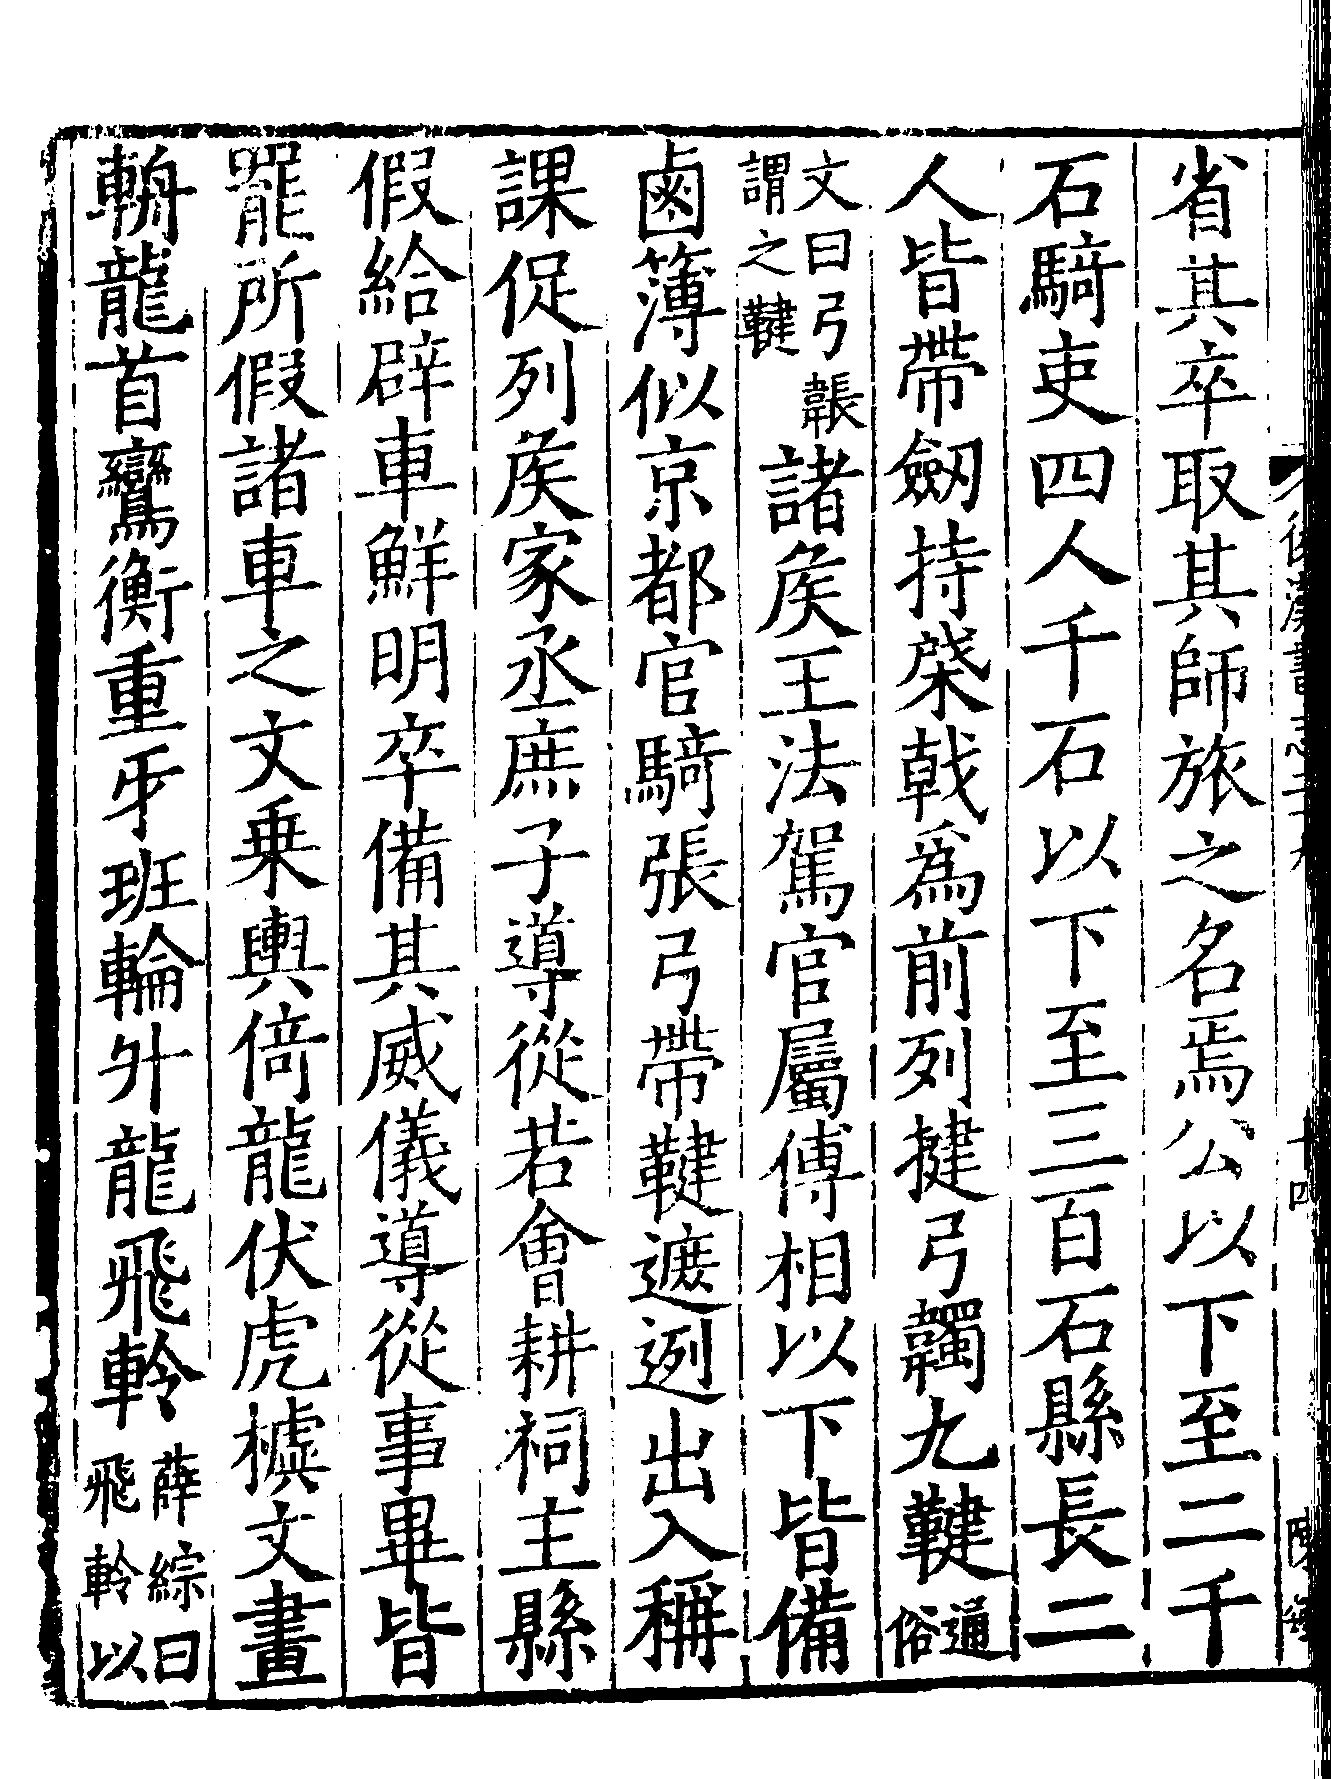 省其卒取其師旅之名焉公以下至二千
石騎吏四人千石以下至三百石縣長二
人皆帶劒持棨戟爲前列揵弓韣九鞬通俗
文曰弓韔謂之鞬諸矦王法駕官屬傅相以下皆備
鹵簿似京都官騎張弓帶鞬遮迾出入稱
課促列矦家丞庶子導從若會耕祠主縣
假給辟車鮮明卒備其威儀導從事畢皆
罷所假諸車之文乗輿倚龍伏虎㯫文畫
輈龍首鸞衡重牙班輪升龍飛軨薛綜曰飛軨以